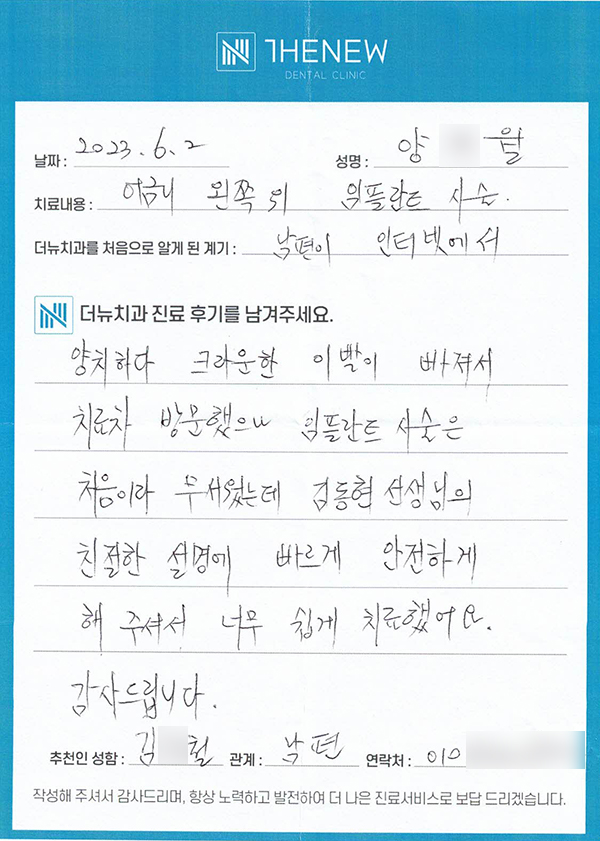 THENEW
DENTAL CLINIC
날짜 : 2023. 6. 2 성명 : 양 월
치료내용 : 어금니 왼쪽 위 임플란트 시술.
더뉴치과를 처음으로 알게 된 계기 : 남편이 인터넷에서
더뉴치과 진료 후기를 남겨주세요.
양치하다 크라운한 이빨이 빠져서
치료차 방문했으나 임플란트 시술은
처음이라 무서웠는데 김동현 선생님의
친절한 설명에 빠르게 안전하게
해 주셔서 너무 쉽게 치료했어요.
감사드립니다.
추천인 성함 : 김 철 관계 : 남편 연락처 : 010
작성해 주셔서 감사드리며, 항상 노력하고 발전하여 더 나은 진료서비스로 보답 드리겠습니다.